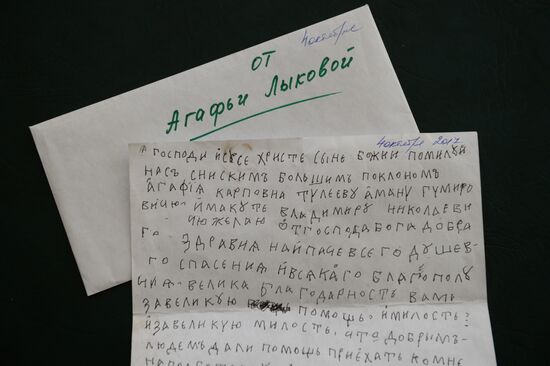 4 октября
от
Агафьи Лыковой
4 октября 2017
Господи Исусе Христе Сыне Божии помилуй
насъ сниским большим поклоном
Агафiя Карповна Тулееву Аману Гумиро
вичю и Макуте Владимиру Николаеви
чю желаю от Господа Бога добра
го здравия найпаче всего душев
го спасения и всякаго благополу
чия велика благодарность вам
за великую помощь и милость
и за великую милость, что добрым
людем дали помощь приехать ко мне